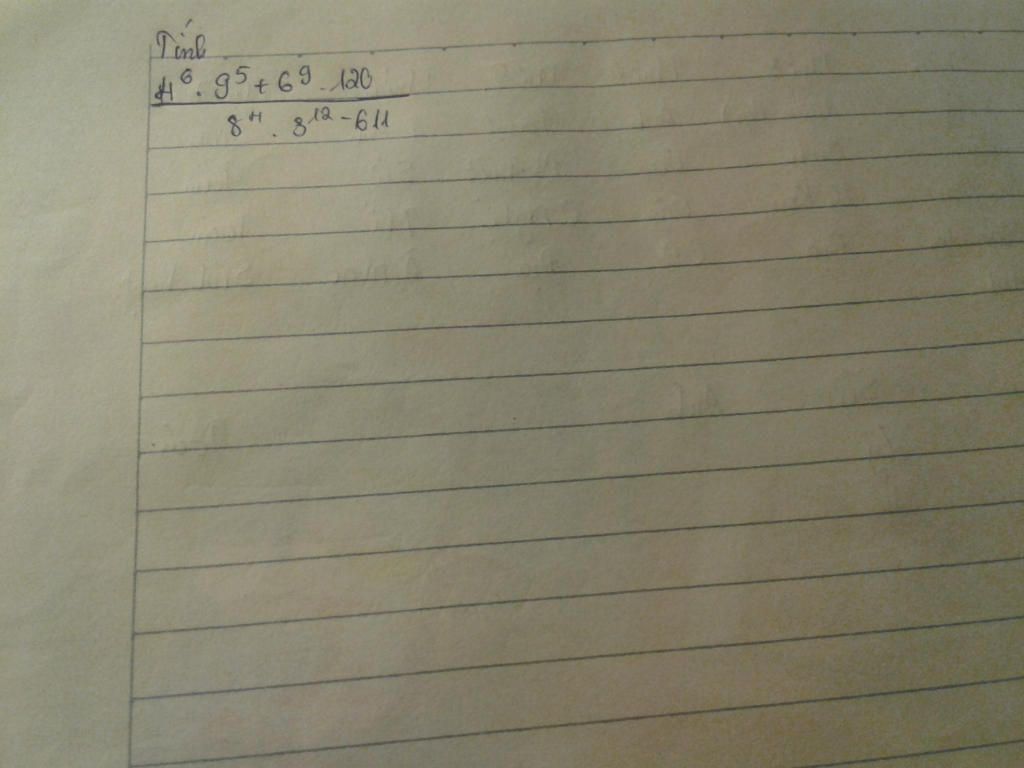 Tính
4⁶ . 9⁵ + 6⁹ . 120
8⁴ . 3¹² - 611